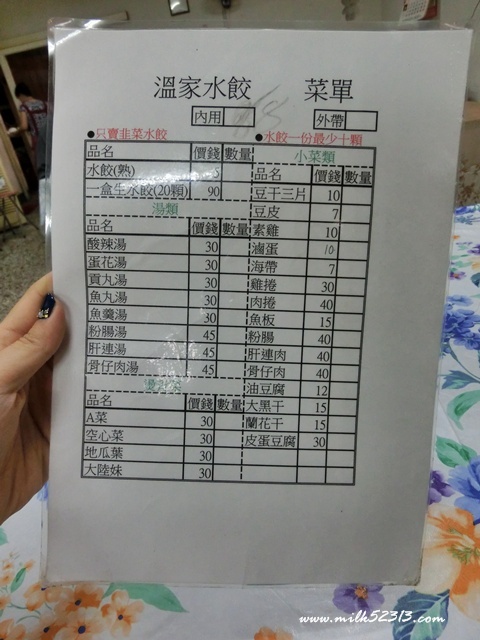 溫家水餃 菜單
內用 外帶
●只賣韭菜水餃 ●水餃一份最少十顆
品名 價錢 數量
水餃(熟) 5
一盒生水餃(20顆) 90
湯類
品名 價錢 數量
酸辣湯 30
蛋花湯 30
貢丸湯 30
魚丸湯 30
魚羹湯 30
粉腸湯 45
肝連湯 45
骨仔肉湯 45
品名 價錢 數量
A菜 30
空心菜 30
地瓜葉 30
大陸妹 30
小菜類
品名 價錢 數量
豆干三片 10
豆皮 7
素雞 10
滷蛋 10
海帶 7
雞捲 30
肉捲 40
魚板 15
粉腸 40
肝連肉 40
骨仔肉 40
油豆腐 12
大黑干 15
蘭花干 15
皮蛋豆腐 30
www.milk52313.com